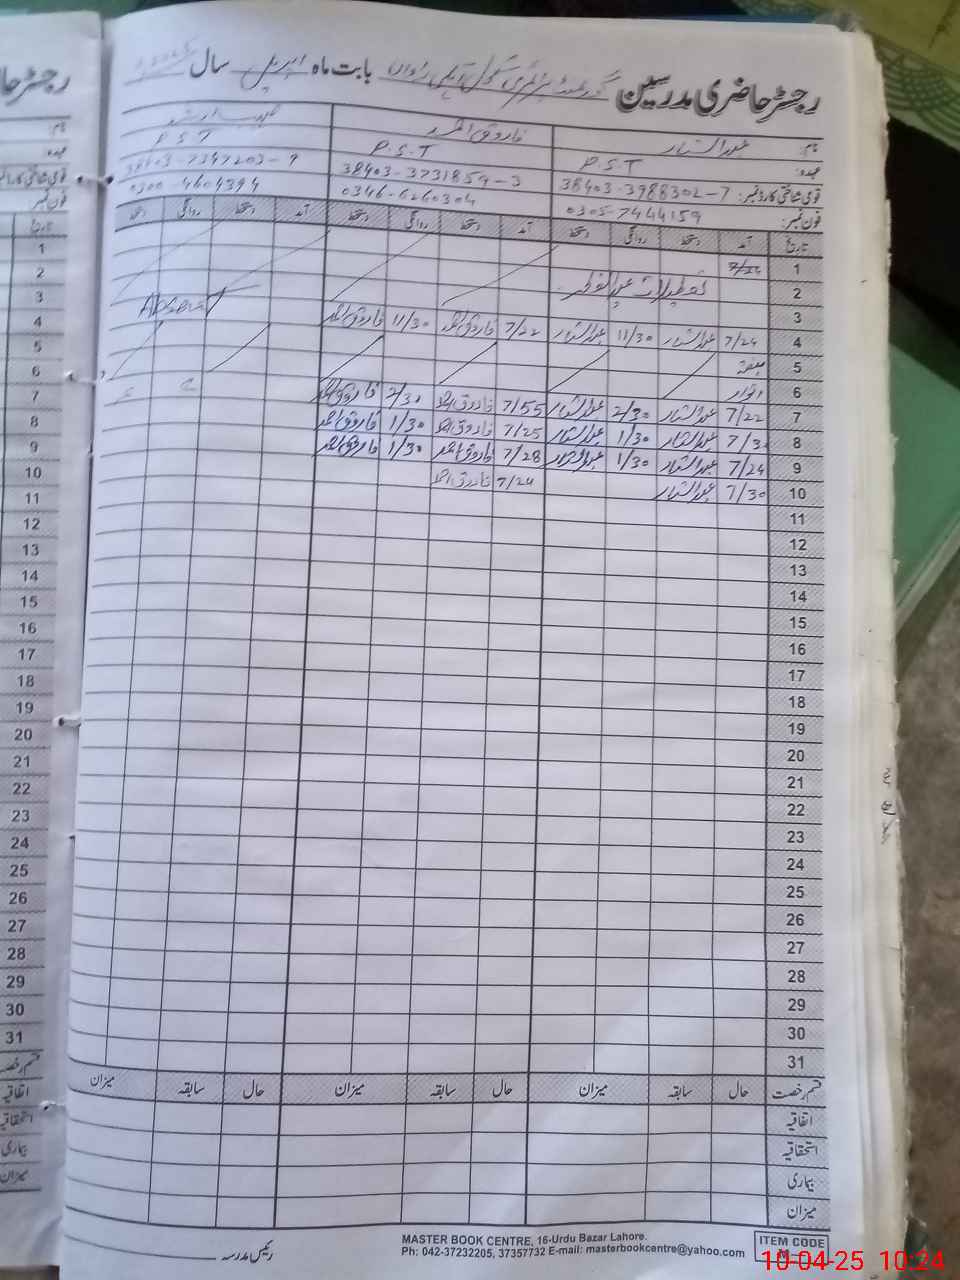 رجسٹر حاضری مدرسین گورنمنٹ پرائمری سکول بابت ماہ اپریل سال
نام: عبدالستار فاروق احمد
عہدہ: P.S.T P.S.T P.S.T
قومی شناختی کارڈ نمبر: 38403-3988302-7 38403-3731859-3 38403-7347203-9
فون نمبر: 0305-7444159 0346-6260304 0300-4604394
تاریخ آمد دستخط روانگی دستخط آمد دستخط روانگی دستخط آمد دستخط روانگی دستخط
1 7/24
2 تعطیلات عیدالفطر
3 Absent
4 7/24 عبدالستار 11/30 عبدالستار 7/22 فاروق احمد 11/30 فاروق احمد
5 ہفتہ
6 اتوار
7 7/22 عبدالستار 2/30 عبدالستار 7/55 فاروق احمد 2/30 فاروق احمد
8 7/3 عبدالستار 1/30 عبدالستار 7/25 فاروق احمد 1/30 فاروق احمد
9 7/24 عبدالستار 1/30 عبدالستار 7/28 فاروق احمد 1/30 فاروق احمد
10 7/30 عبدالستار 7/24 فاروق احمد
11
12
13
14
15
16
17
18
19
20
21
22
23
24
25
26
27
28
29
30
31
قسم رخصت حال سابقہ میزان حال سابقہ میزان حال سابقہ میزان
اتفاقیہ
استحقاقیہ
بیماری
میزان
رئیس مدرسہ
MASTER BOOK CENTRE, 16-Urdu Bazar Lahore.
Ph: 042-37232205, 37357732 E-mail: masterbookcentre@yahoo.com
ITEM CODE
10-04-25 10:24